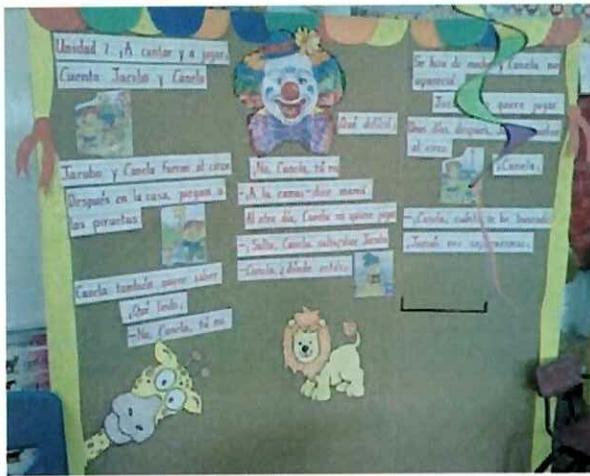 Unidad 7. ¡A cantar y a jugar!
Cuento Jacobo y Canela
Jacobo y Canela fueron al circo
Después en la casa, juegan a
las piruetas
Canela también quiere saber
¡Qué lindo!
-No, Canela, tú no
¡Qué difícil!
¡No, Canela, tú no
-¡A la cama!-dice mamá
Al otro día, Canela no quiere jugar
-¡Salta, Canela, salta!, dice Jacobo
-Canela, ¿dónde estás?
Se hizo de noche y Canela no
apareció.
quiere jugar
Unos días después,
al circo
¡Canela!
-¡Canela, cuánto te he buscado!
-Jamás nos separaremos.